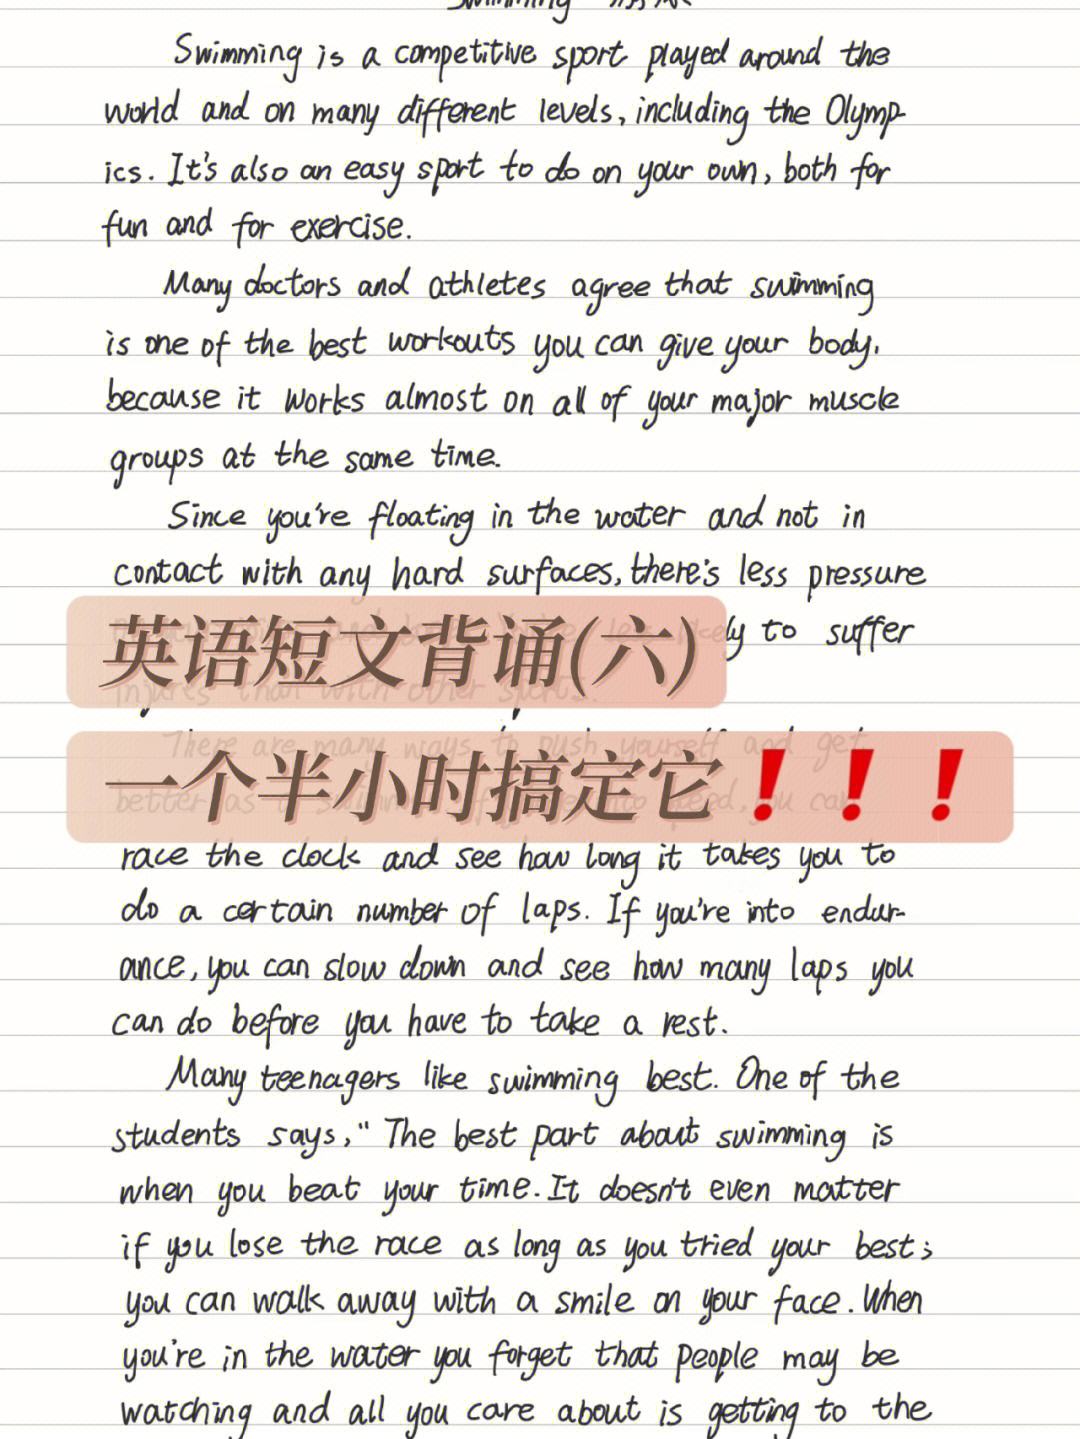 Swimming 游泳
Swimming is a competitive sport played around the
world and on many different levels, including the Olymp-
ics. It's also an easy sport to do on your own, both for
fun and for exercise.
Many doctors and athletes agree that swimming
is one of the best workouts you can give your body,
because it works almost on all of your major muscle
groups at the same time.
Since you're floating in the water and not in
contact with any hard surfaces, there's less pressure
likely to suffer
英语短文背诵(六)
injures than with other sports.
There are many ways to push yourself and get
一个半小时搞定它❗❗❗
better as a swimmer. speed, you can
race the clock and see how long it takes you to
do a certain number of laps. If you're into endur-
ance, you can slow down and see how many laps you
can do before you have to take a rest.
Many teenagers like swimming best. One of the
students says, "The best part about swimming is
when you beat your time. It doesn't even matter
if you lose the race as long as you tried your best;
you can walk away with a smile on your face. When
you're in the water you forget that people may be
watching and all you care about is getting to the